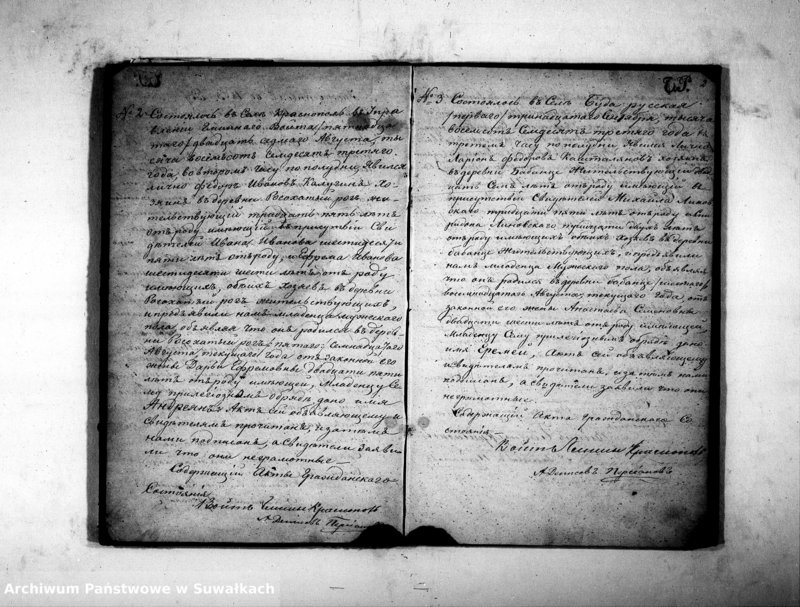 № 2 Состоялось въ Селѣ Краснополь въ Упра
вленіи Гминнаго Войта /пятнадца
таго/ двадцать седмаго Августа, ты
сяча восемьсотъ семдесятъ третяго
года, во второмъ часу по полудни, Явился
лично Федоръ Ивановъ Калугинъ Хо
зяинъ въ деревни Росохатый рогъ жи
тельствующій тридцать пять лѣтъ
отъ роду имѣющій, въ присутствіи Сви
дѣтелей Ивана Иванова шестидесяти
пяти лѣтъ отъ роду, и Ефрама Иванова
шестидесяти шести лѣтъ отъ роду
имѣющихъ, обоихъ Хозяевъ въ деревни
Росохатый рогъ жительствующихъ,
и предъявили намъ младенца мужескаго
пола, объявляя что онъ родился въ дерев
ни Росохатый рогъ /пятаго/ Семнадцатаго
Августа, текущаго года отъ законной его
жены Дарьи Ефремовны двадцати пяти
лѣтъ отъ роду имѣющей, Младенцу Се
му при религіозномъ обрядѣ дано имя
Андреянъ Актъ сей объявляющему и
свидѣтелямъ прочитанъ, и затымъ
нами подписанъ, а свидѣтели заяви
ли что они неграмотные
Содержащій Акты Гражданскаго
Состоянія
Войтъ Гмины Краснополь
№ 3 Состоялось въ Селѣ Буда русская
/перваго/ тринадцатаго Сентября, тысяча
восемьсотъ семдесятъ третяго года въ
третьемъ часу по полудни Явился Лично
Ларіонъ Федоровъ Хозяинъ
въ деревни Бабинце Жительствующій два
дцать Семь лѣтъ отъ роду имѣющій въ
присутствіи Свидѣтелей Михаила
тридцати пяти лѣтъ отъ роду и
тридцати двухъ лѣтъ
отъ роду имѣющихъ обоихъ Хозяевъ въ деревни
Бабинце Жительствующихъ, и предъявили
намъ младенца Мужескаго пола, объявляя
что онъ родился въ деревни Бабинце /шестаго/
восемнадцатаго Августа, текущаго года, отъ
законной его жены Анастасіи Семеновны
двадцати шести лѣтъ отъ роду имѣющей
Младенцу Сему при религіозномъ обрядѣ дано
имя Еремей, Актъ сей объявляющему
и свидѣтелямъ прочитанъ, и затымъ нами
подписанъ, а свидѣтели заявили что они
неграмотные.
Содержащій Акта Гражданскаго Со
стоянія
Войтъ Гмины Краснополь
Archiwum Państwowe w Suwałkach